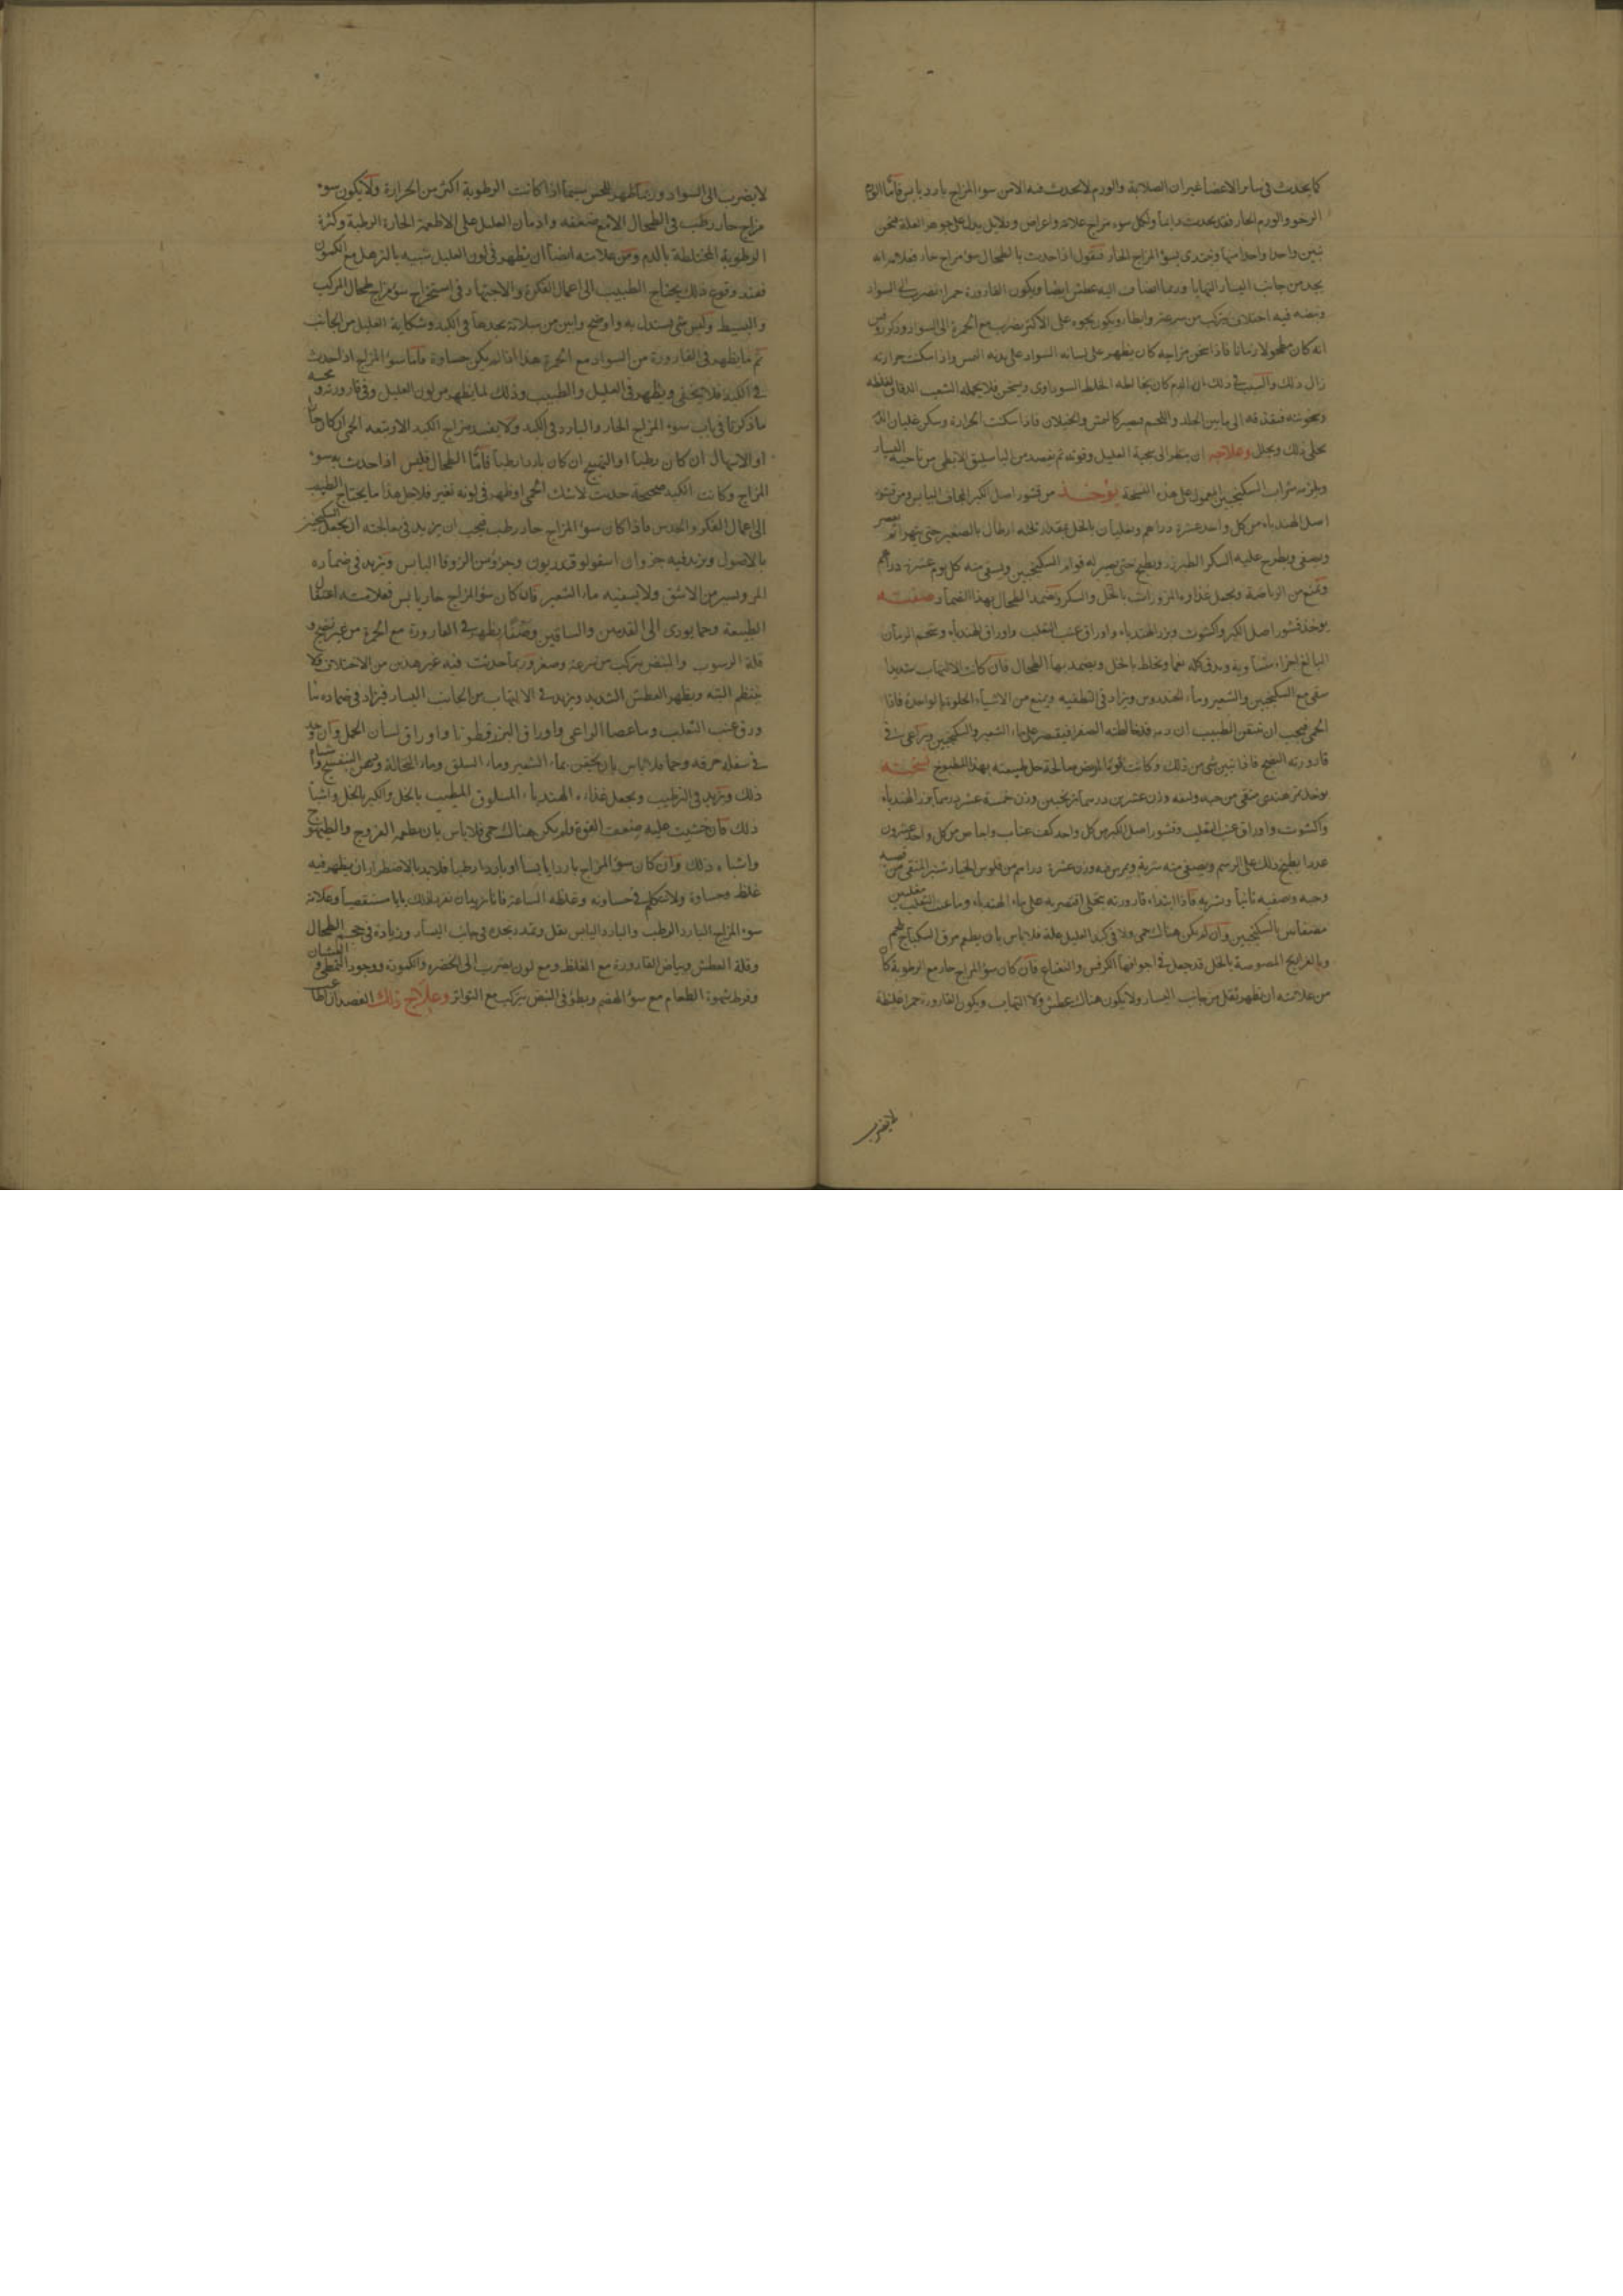 كما يحدث فى سائر الاعضا غير ان الصلابة والورم لا يحدث فيه الا من سوء المزاج بارد يابس فاما الورم
الرخو والورم الحار فقد يحدث دايما ولكل سوء مزاج علامة واعراض ودلايل يدل على جوهر العلة فنحن
نبين واحدا واحدا منها ونبتدى بسوء المزاج الحار فنقول اذا حدث بالطحال سوء مزاج حار فعلامته انه
يجد من جانب اليسار التهابا وربما انضاف اليه عطش ايضا ويكون القارورة حمرا تضرب الى السواد
ونبضه فيه اختلاف يتركب من سرعة وابطا ويكون على الاكثر يضرب مع الحمرة الى السواد وذكر روفس
انه كان مطحولا زمانا فاذا سخن مزاجه كان يظهر على لسانه السواد على بدنه النمش واذا سكنت حرارته
زال ذلك والسبب فى ذلك ان الدم كان يخالطه الخلط السوداوى ويسخن فلا يحمله الشعب الدقاق لغلظه
وسخونته فيقذفه الى ما بين الجلد واللحم فيصير كالنمش والخيلان فاذا سكنت الحرارة وسكن غليان الدم
تحلى ذلك وتحلل وعلاجه ان ينظر الى سحنة العليل وقوته ثم يفصد من الباسليق الابطى من ناحية اليسار
ويلزمه شراب السكنجبين المعمول على هذه النسخة يؤخذ من قشور اصل الكبر الجاف اليابس ومن قشور
اصل الهندباء من كل واحد عشرة دراهم ويغليان بالخل بقدر ثلثه ارطال بالصغير حتى يتهرا ثم يعصر
ويصفى ويطرح عليه السكر الطبرزد ويطبخ حتى يصير له قوام السكنجبين ويسقى منه كل يوم عشرة دراهم
ويمنع من الرياضة ويجعل غذاوه المزورات بالخل والسكر ويضمد الطحال بهذا الضماد صفته
يوخذ قشور اصل الكبر واكشوث وبزر الهندباء واوراق عنب الثعلب واوراق الهندباء وشحم الرمان
البالغ اجزاء متساوية ويدق كله نعما ويخلط بالخل ويضمد بها الطحال فان كانت الالتهاب شديدا
سقى مع السكنجبين والشعير وماء الخندروس ويزاد فى التطفيه ويمنع من الاشياء الحلوة الواحدة فاذا
الحمى فيجب ان يتيقن الطبيب ان دمه قد خالطته الصفرا فيقتصر على ماء الشعير والسكنجبين ويراعى فى
قارورته النضج فاذا تبين شى من ذلك وكانت قوة المريض صالحة حل طبيعته بهذا المطبوخ نسخته
يوخذ تمر هندى منقى من حبه وليفه وزن عشرين درهما ترنجبين وزن خمسة عشر درهما بزر الهندباء
واكشوث واوراق عنب الثعلب وقشور اصل الكبر من كل واحد كف عناب واجاص من كل واحد عشرون
عددا يطبخ ذلك على الرسم ويصفى منه شربة ويمرس فيه وزن عشرة دراهم من فلوس الخيار شنبر المنقى من قصبه
وحبه وتصفيه ثانيا وتشربه فاذا ابتداء قارورته يتحلى اقتصر به على ماء الهندباء وماء عنب الثعلب مغليين
مصفاتين بالسكنجبين وان لم يكن هناك حمى ولا فى كبد العليل علة فلا باس بان يطعم مرق السكباج بلحم
وبالفراريج المصوصة بالخل قد جعل فى اجوافها الكرفس والنعناع فان كان سوء المزاج حار مع الرطوبة كان
من علامته ان يظهر ثقل من جانب اليسار ولا يكون هناك عطش ولا التهاب ويكون القارورة حمرا غليظة
لا يضرب
لا يضرب الى السواد وربما ظهر للحس سيما اذا كانت الرطوبة اكثر من الحرارة ولا يكون سوء
مزاج حار رطب فى الطحال الا مع ضعفه وادمان العليل على الاطعمة الحارة الرطبة وكثرة
الرطوبة المختلطة بالدم ومن علامته ايضا ان يظهر فى لون العليل شبيه بالترهل مع الكمون
فعند وقوع ذلك يحتاج الطبيب الى اعمال الفكرة والاجتهاد فى استخراج سوء مزاج طحال المركب
والبسيط وليس شى يستدل به واوضح وابين من سلامة يجدها فى الكبد وشكاية العليل من الجانب
ثم ما يظهر فى القارورة من السواد مع الحمرة هذا اذا لم يكن جساوة فاما سوء المزاج اذا حدث
فى الكبد فلا يخفى ويظهر فى العليل والطبيب وذلك لما يظهر من لون العليل وفى قارورته ومجسه
ما ذكرنا فى باب سوء المزاج الحار والبارد فى الكبد ولا يفسد مزاج الكبد الا وتتبعه الحمى ان كان حارا
او الاسهال ان كان رطبا او التهيج ان كان باردا رطبا فاما الطحال فليس اذا حدث به سوء
المزاج وكانت الكبد صحيحة حدث لا شك الحمى او ظهر فى لونه تغير فلاجل هذا ما يحتاج الطبيب
الى اعمال الفكر والحدس فاذا كان سوء المزاج حار رطب فيجب ان يزيد فى معالجته ان يجعل السكنجبين
بالاصول ويزيد فيه جزوان اسقولوقندريون وجزو من الزوفا اليابس ويزيد فى ضماده
المر ويسير من الاشق ولا يسقيه ماء الشعير فان كان سوء المزاج حار يابس فعلامته اعتقال
الطبيعة وحما يورى الى القدمين والساقين وصفا يظهر فى القارورة مع الحمرة من غير نضج و
قلة الرسوب والنبض يتركب من سرعة وصغر وربما حدثت فيه غير هذين من الاختلاف ولا
ينتظم البتة ويظهر العطش الشديد ويزيد فى الالتهاب من الجانب اليسار فيزاد فى ضماده شا
ورق عنب الثعلب وماء عصا الراعى واوراق البزرقطونا واوراق لسان الحمل وان وجد
فى سفله حرقه وحما فلا باس بان يحقن بماء الشعير وماء السلق وماء النخالة ودهن البنفسج واشباه
ذلك ويزيد فى الترطيب ويجعل غذاءه الهندباء المسلوق المطيب بالخل والكبر بالخل واشباه
ذلك فان خشيت عليه ضعف القوة ولم يكن هناك حمى فلا باس بان يطعم الفروج والطيهوج
واشباه ذلك وان كان سوء المزاج باردا يابسا او باردا رطبا فلابد بالاضطرار ان يظهر فيه
غلظ وجساوة ولا نتكلم فى جساوته وغلظه الساعة فانا نريد ان نفرد لذلك بابا مستقصيا وعلامة
سوء المزاج البارد الرطب والبارد اليابس ثقل وتمدد يجده فى جانب اليسار وزيادة فى حجم الطحال
وقلة العطش وبياض القارورة مع الغلظ ومع لون يضرب الى الخضرة والكمودة ووجود التمطى و الغشيان
وفرط شهوة الطعام مع سوء الهضم وبطؤ فى النبض يتركب مع التواتر وعلاج ذلك الفصد